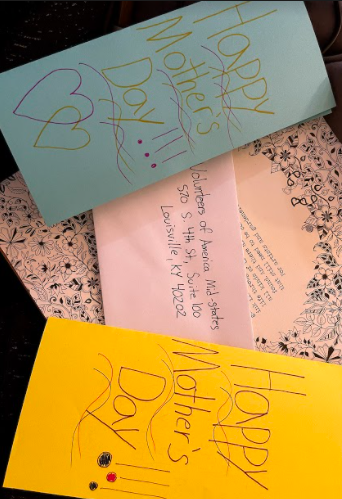 Happy
Mother's
Day!!!
Volunteers of America Mid-states
570 S. 4th St. Suite 100
Louisville, KY 40202
Happy
Mother's
Day!!!